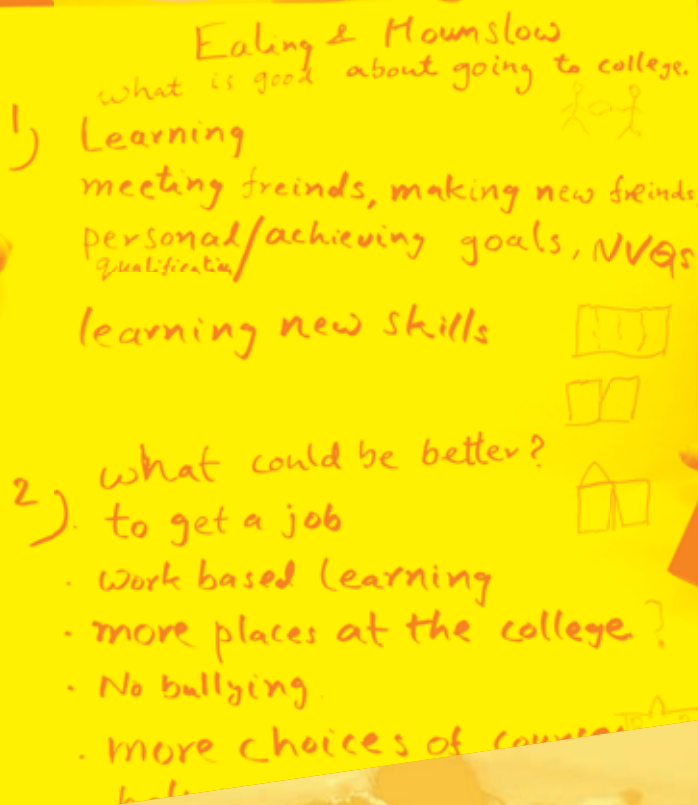 Ealing & Hounslow
what is good about going to college.
1) Learning
meeting freinds, making new freinds,
personal/achieving goals, NVQs
qualification
learning new skills
2) what could be better?
to get a job
. work based learning
. more places at the college.
. No bullying.
. more choices of courses